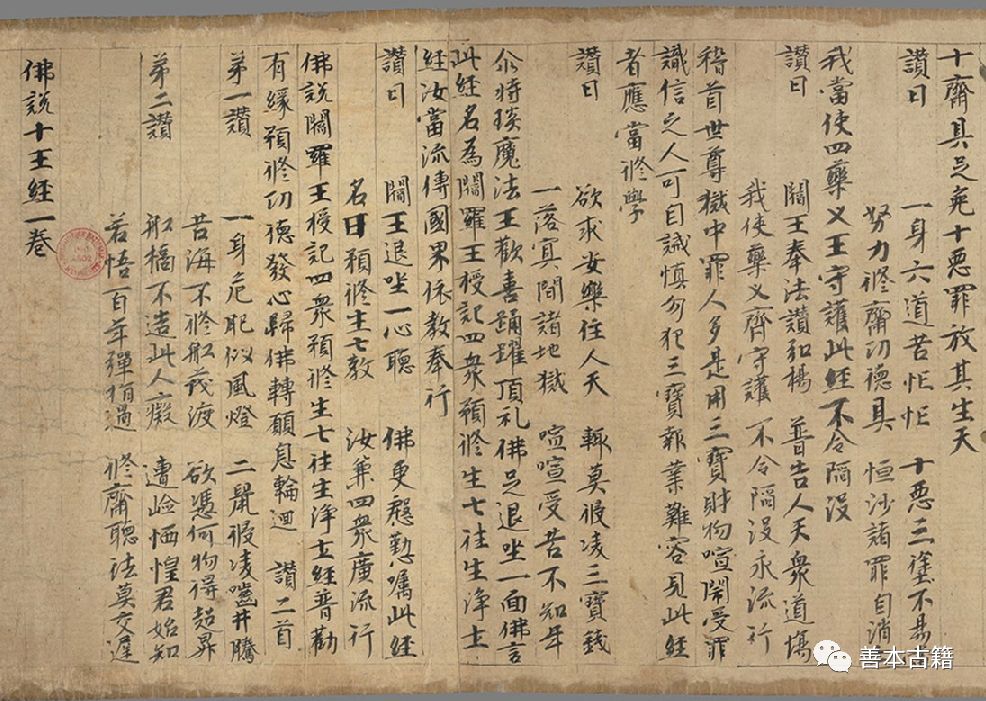 十齋具足免十惡罪放其生天
讚曰 一身六道苦忙忙 十惡三塗不易
努力修齋功德具 恒沙諸罪自消
我當使四藥叉王守護此經不令陷沒
讚曰 閻王奉法讚和揚 普告人天衆道塲
我使藥叉齊守護 不令陷沒永流行
稽首世尊獄中罪人多是用三寶財物喧閙受罪
識信之人可自誡慎勿犯三寶報業難容見此經
者應當修學
讚曰 欲求安樂住人天 輙莫侵凌三寶錢
一落冥間諸地獄 喧喧受苦不知年
尒時琰魔法王歡喜踊躍頂礼佛足退坐一面佛言
此經名為閻羅王授記四衆預修生七往生淨土
經汝當流傳國界依教奉行
讚曰 閻王退坐一心聽 佛更慇懃囑此經
名曰預修生七教 汝兼四衆廣流行
佛說閻羅王授記四衆預修生七往生淨土經普勸
有緣預修功德發心歸佛轉願息輪迴 讚二首
第一讚 一身危脃似風燈 二鼠侵凌嚙井騰
苦海不修舩筏渡 欲憑何物得超昇
第二讚 舩橋不造此人癡 遭嶮恓惶君始知
若悟百年彈指過 修齋聽法莫交遲
佛說十王經一卷
善本古籍